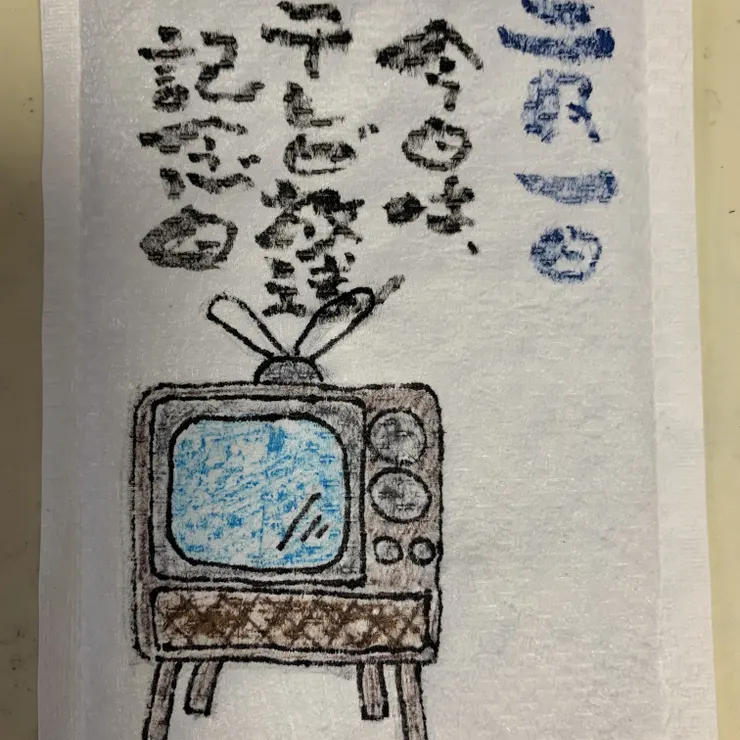 二月一日
今日は、
テレビ放送
記念日